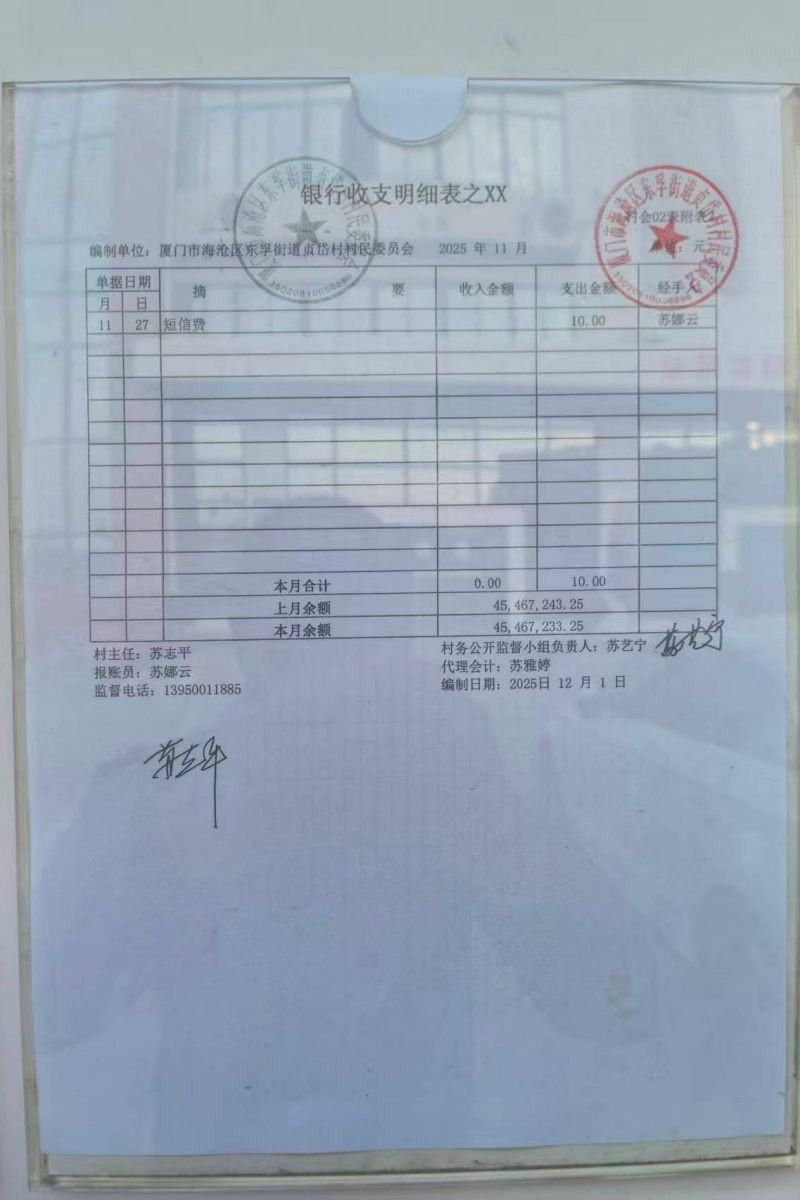 银行收支明细表之XX
村会02表附表2
编制单位：厦门市海沧区东孚街道贞岱村村民委员会 2025 年 11 月 单位：元
单据日期 摘 要 收入金额 支出金额 经手人
月 日
11 27 短信费 10.00 苏娜云
本月合计 0.00 10.00
上月余额 45,467,243.25
本月余额 45,467,233.25
村主任：苏志平 村务公开监督小组负责人：苏艺宁 苏艺宁
报账员：苏娜云 代理会计：苏雅婷
监督电话：13950011885 编制日期：2025日 12 月 1 日
苏志平
厦门市海沧区东孚街道贞岱村村民委员会
厦门市海沧区东孚街道贞岱村村民委员会